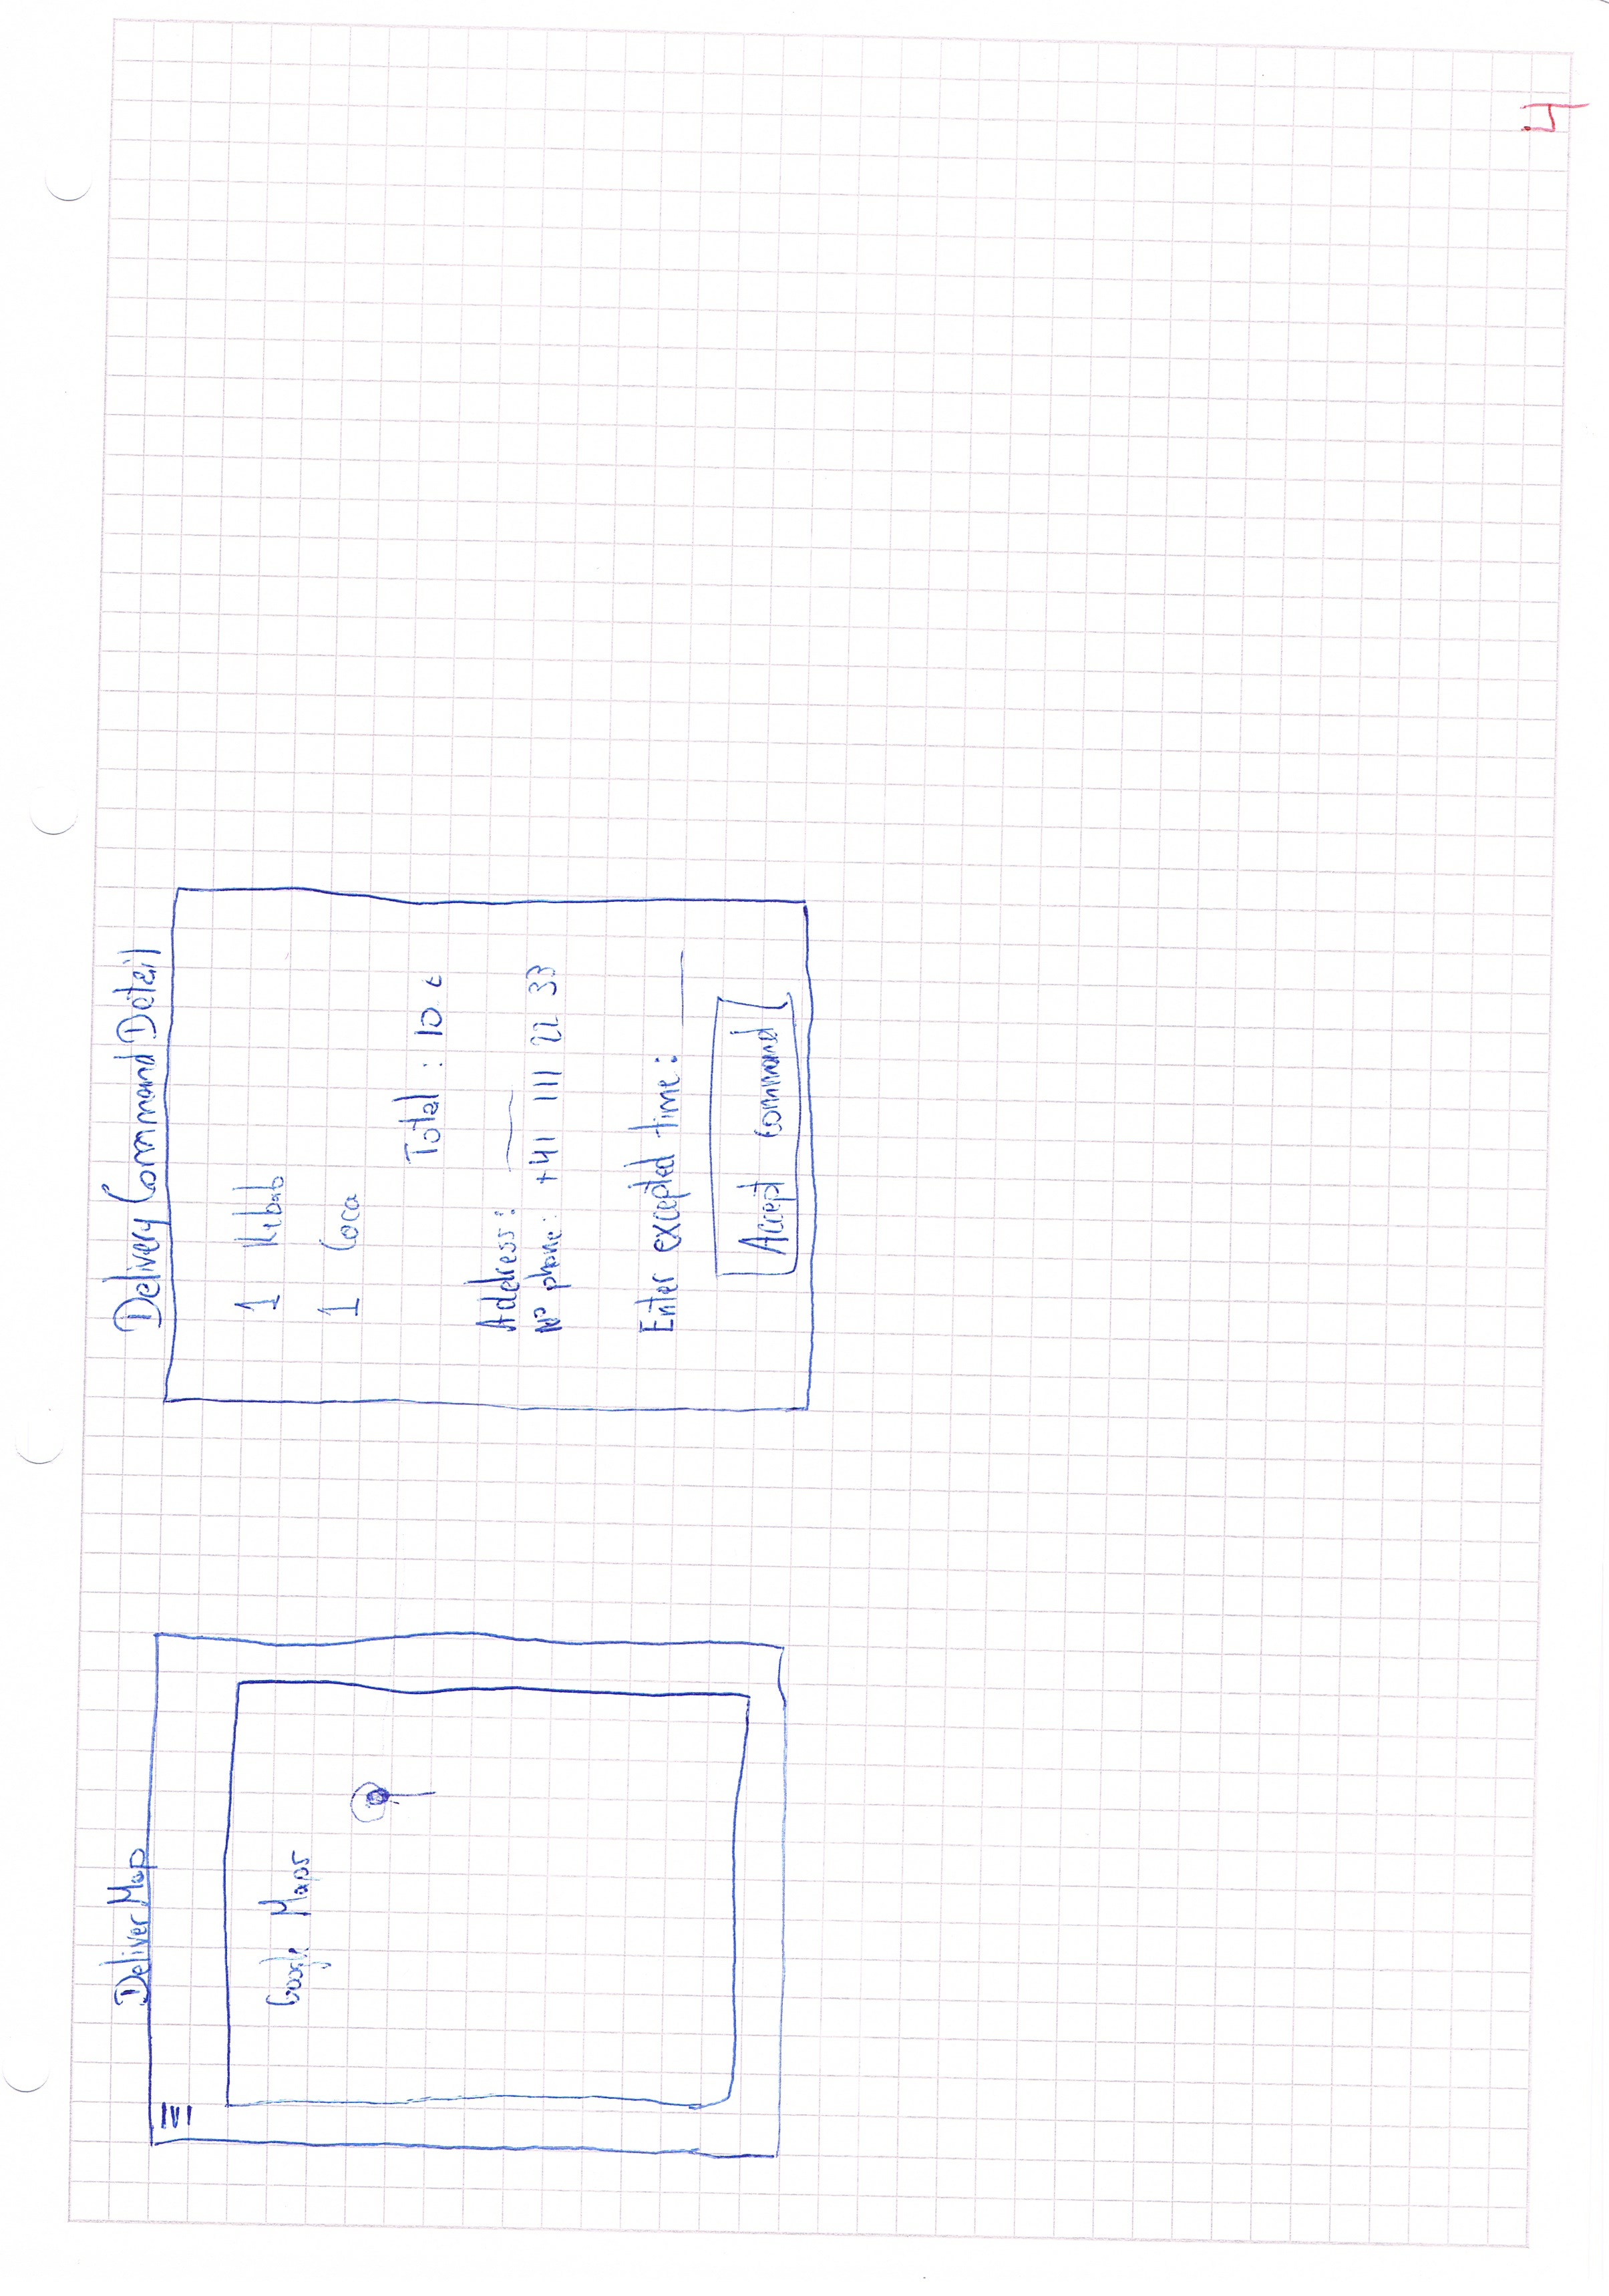 Deliver Map
Google Maps
Delivery Command Detail
1 Kebab
1 Coca
Total : 10 €
Address : ____
N° phone : +41 111 22 33
Enter excepted time : ____
Accept command
4